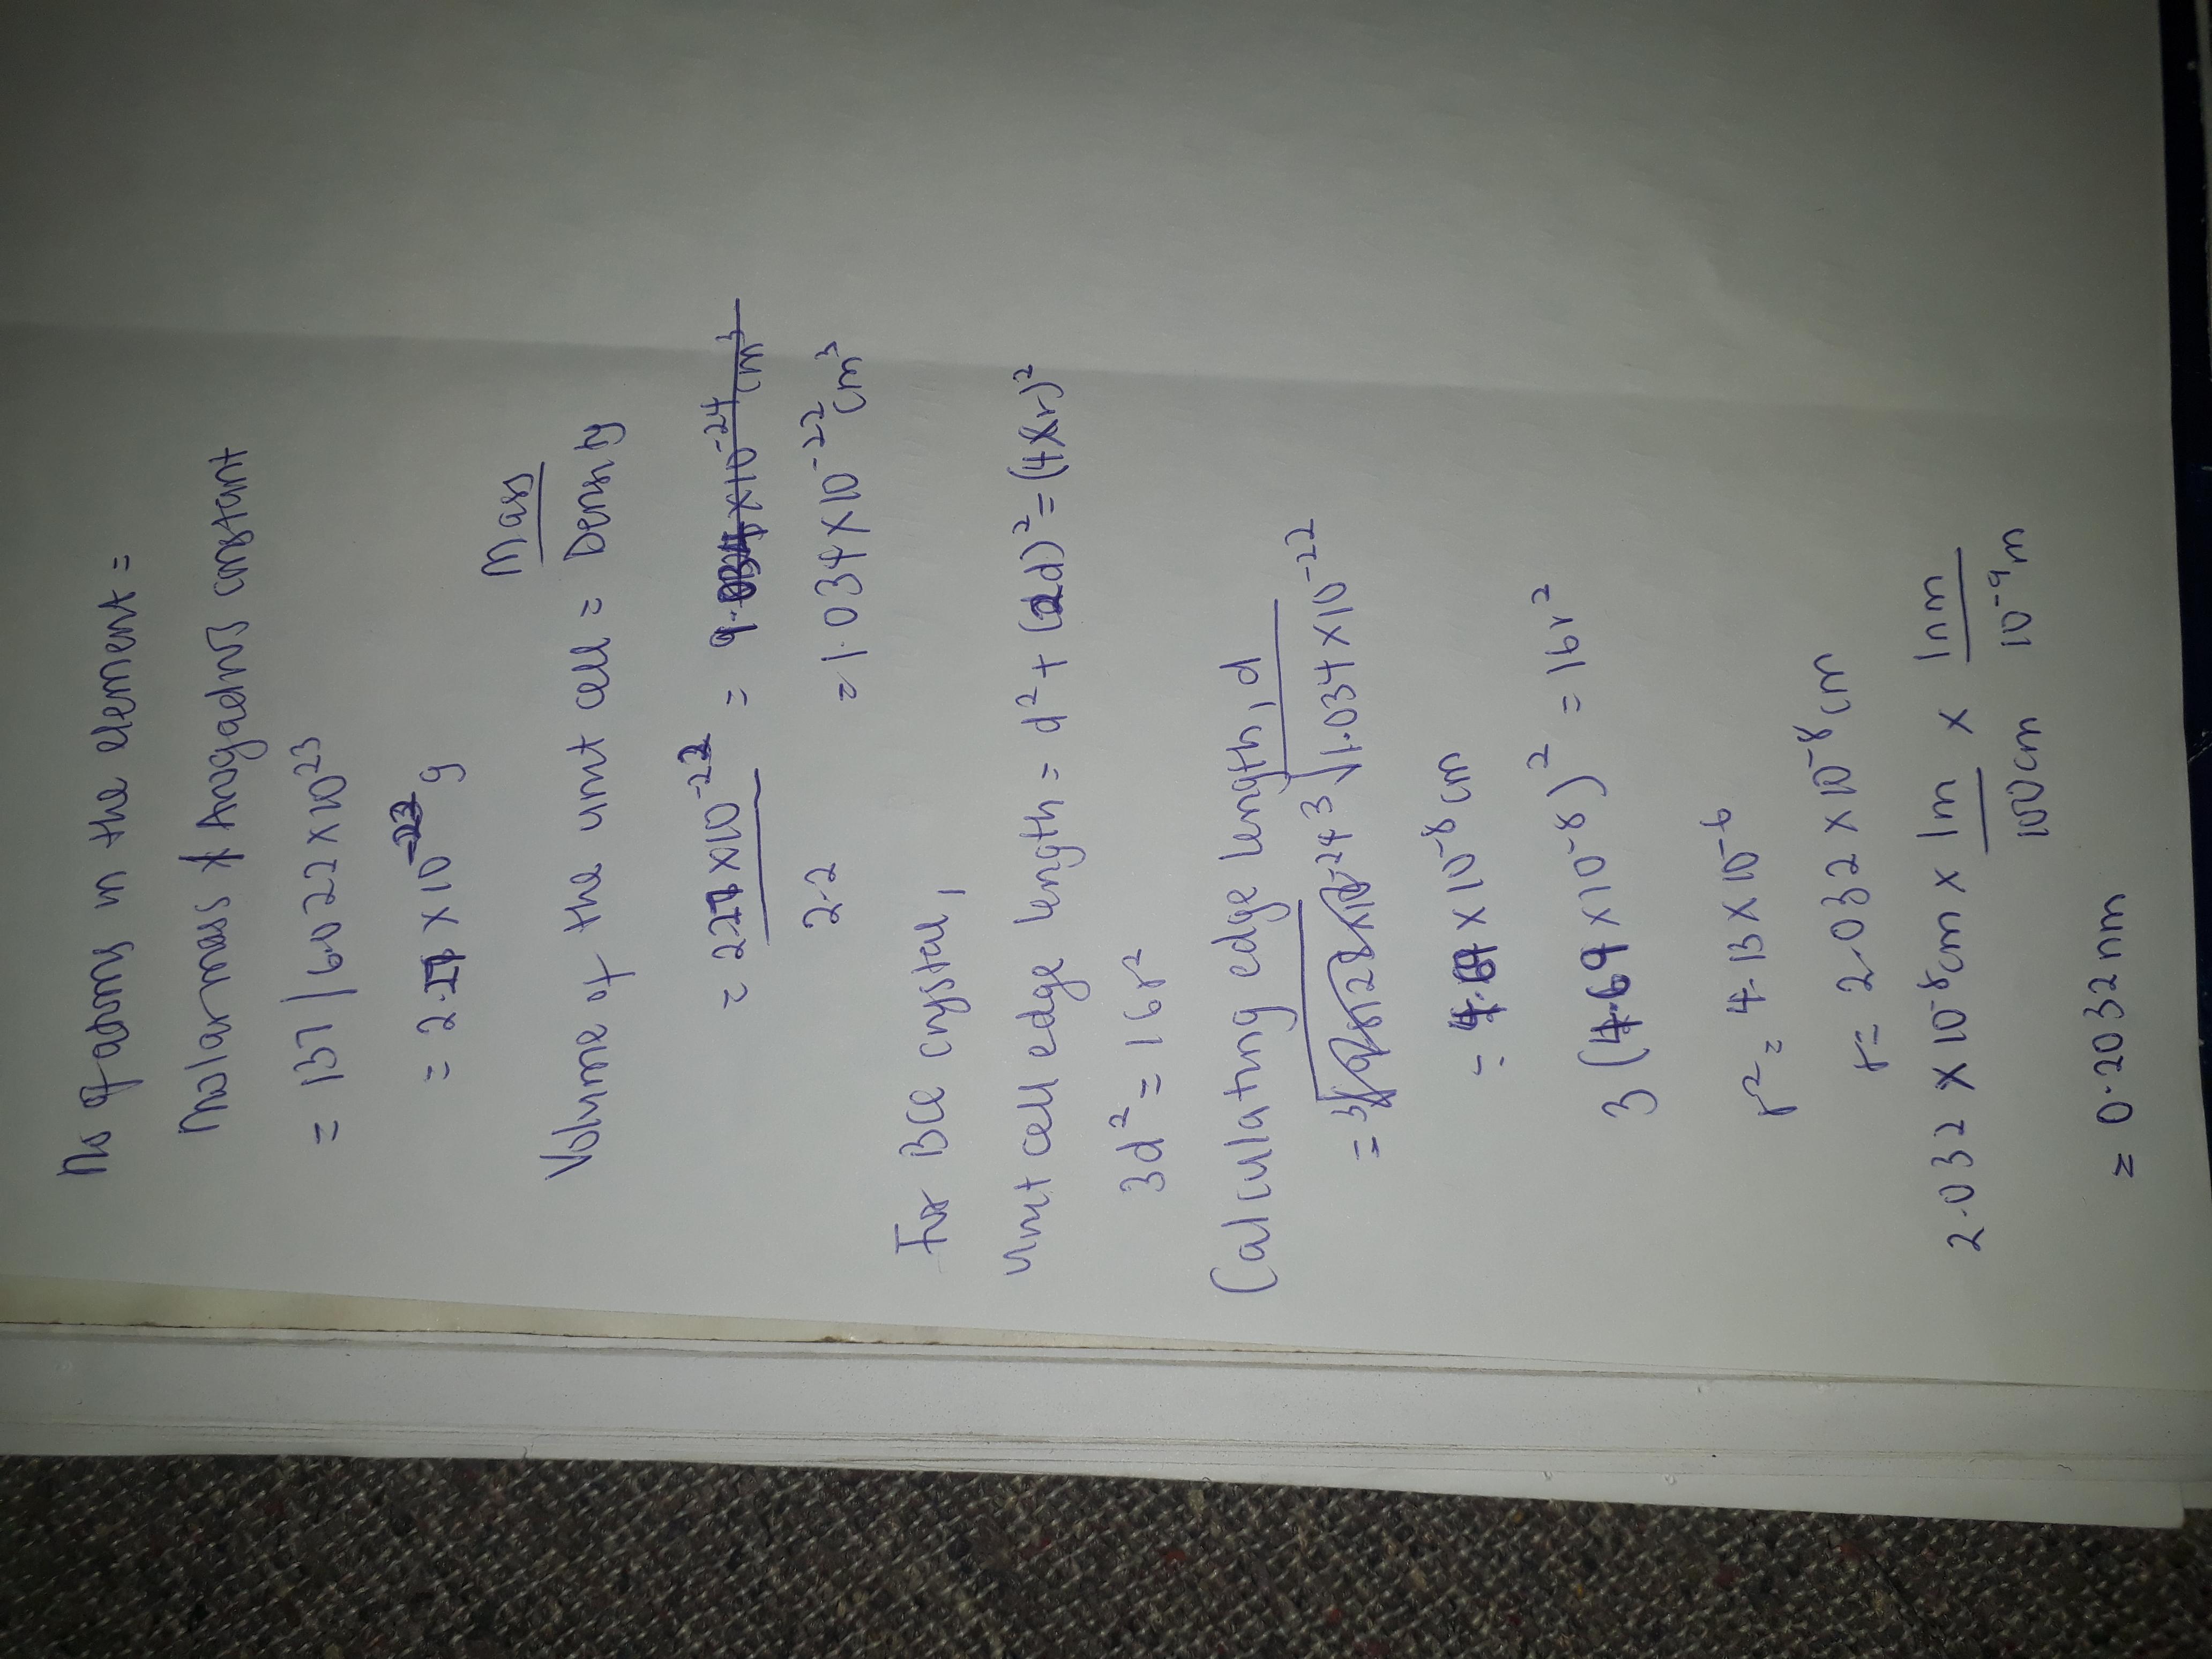 No of atoms in the element =
Molar mass / Avogadros constant
= 137 / 6.022 x 10²³
= 2.27 x 10⁻²² g
Volume of the unit cell = Mass / Density
= 2.27 x 10⁻²² / 2.2 = 9.034 x 10⁻²⁴ cm³
= 1.034 x 10⁻²² cm³
For BCC crystal,
Unit cell edge length = d² + (2d)² = (4xr)²
3d² = 16r²
Calculating edge length, d
= ³√1.034 x 10⁻²²
= 4.69 x 10⁻⁸ cm
3 (4.69 x 10⁻⁸)² = 16r²
r² = 4.13 x 10⁻⁶
r = 2.032 x 10⁻⁸ cm
2.032 x 10⁻⁸ cm x 1m / 100cm x 1nm / 10⁻⁹m
= 0.2032 nm